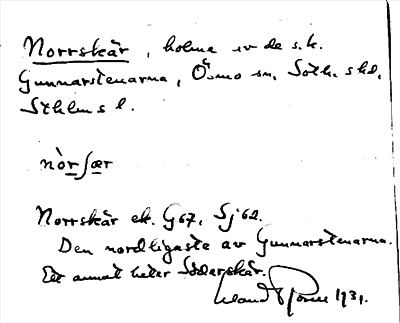 Norrskär, holme av de s.k.
Gunnarstenarna, Ösmo sn, Soth. shd,
Sthlms l.
nòrsær
Norrskär ek. G67, Sj62.
Den nordligaste av Gunnarstenarna.
Ett annat heter Söderskär.
1931.